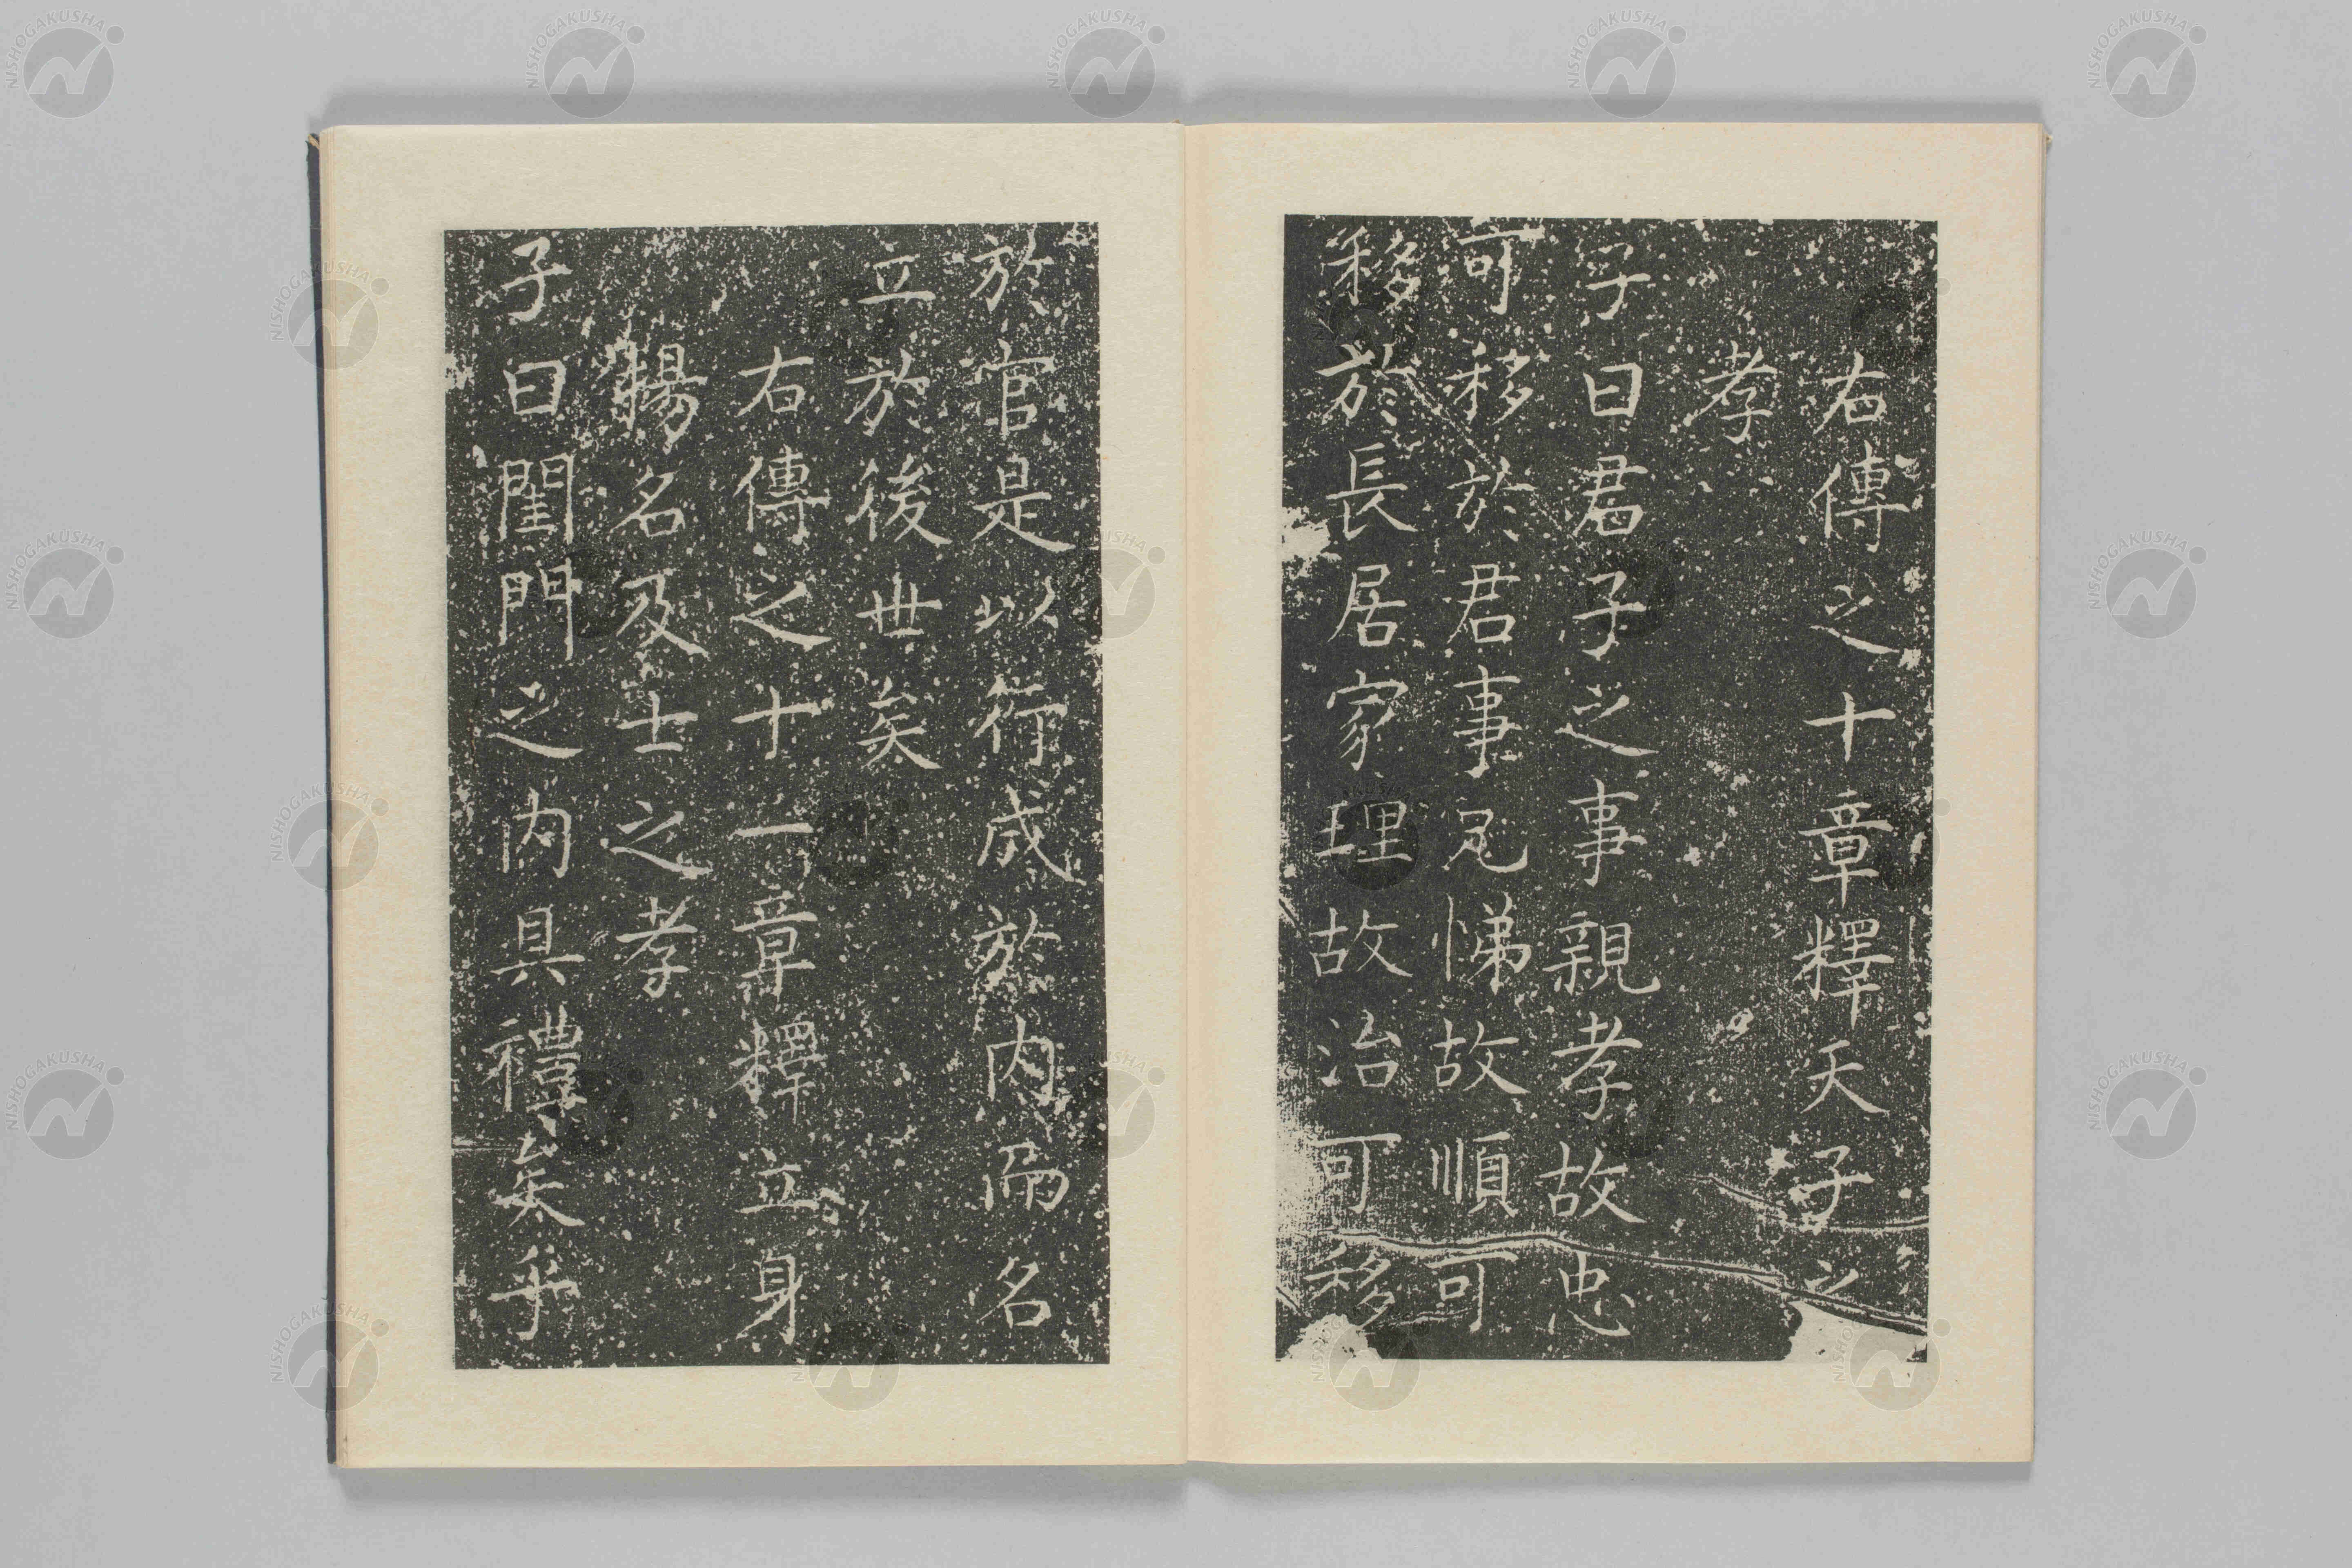 右傳之十章釋天子之
孝
子曰君子之事親孝故忠
可移於君事兄悌故順可
移於長居家理故治可移
於官是以行成於内而名
立於後世矣
右傳之十一章釋立身
揚名及士之孝
子曰閨門之内具禮矣乎
NISHOGAKUSHA